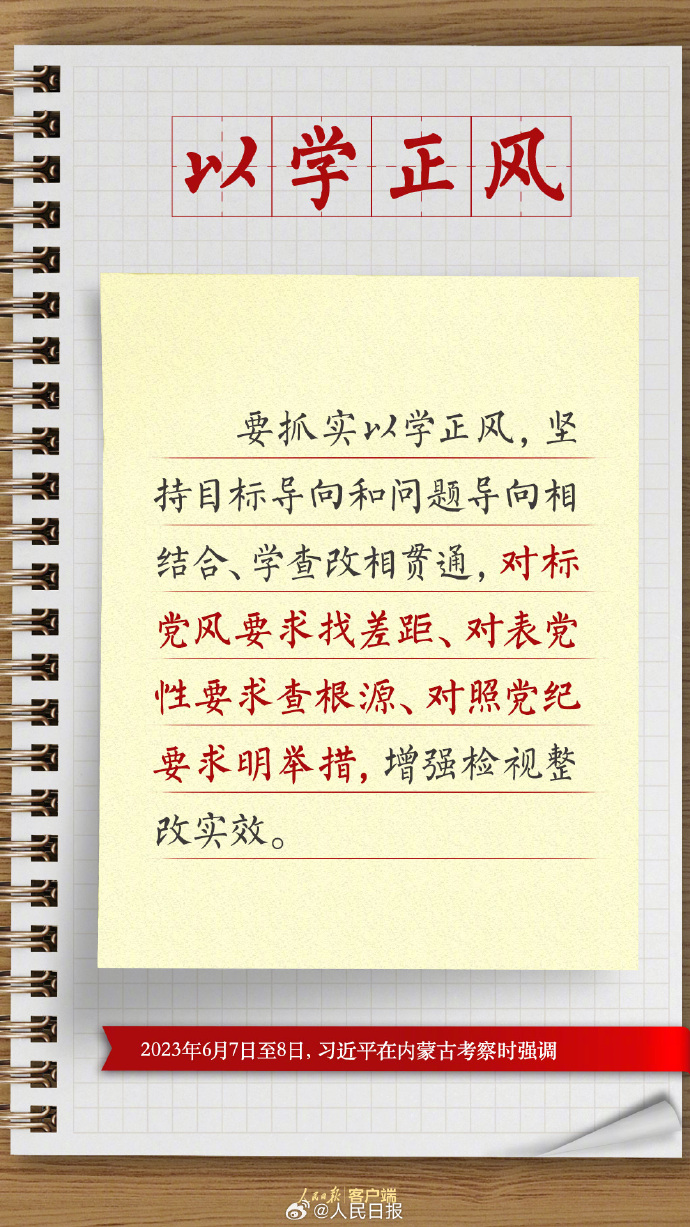 以学正风
要抓实以学正风，坚
持目标导向和问题导向相
结合、学查改相贯通，对标
党风要求找差距、对表党
性要求查根源、对照党纪
要求明举措，增强检视整
改实效。
2023年6月7日至8日，习近平在内蒙古考察时强调
人民日报 客户端
@人民日报